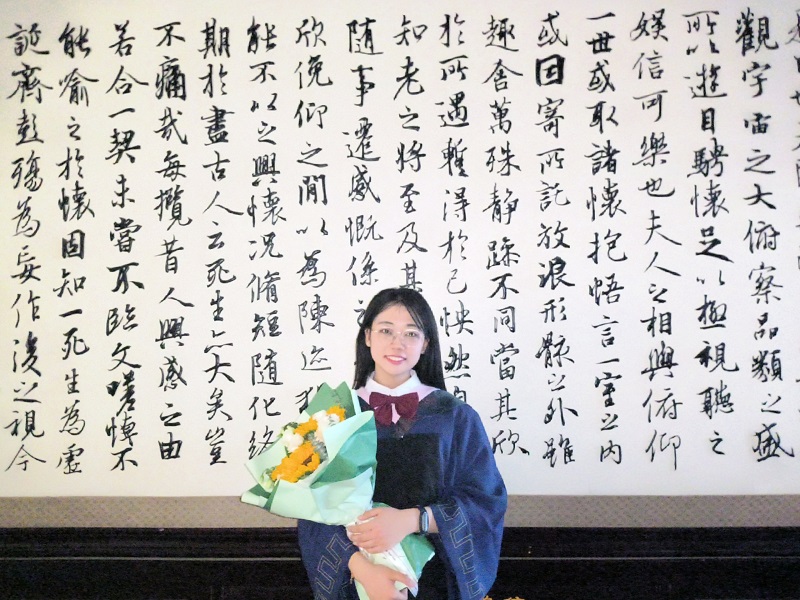 觀宇宙之大俯察品類之盛
所以遊目騁懷足以極視聽之
娛信可樂也夫人之相與俯仰
一世或取諸懷抱悟言一室之內
或因寄所託放浪形骸之外雖
趣舍萬殊靜躁不同當其欣
於所遇暫得於己快然自
知老之將至及其
隨事遷感慨係
欣俛仰之閒以為陳迹
能不以之興懷況脩短隨化終
期於盡古人云死生亦大矣豈
不痛哉每攬昔人興感之由
若合一契未嘗不臨文嗟悼不
能喻之於懷固知一死生為虛
誕齊彭殤為妄作後之視今